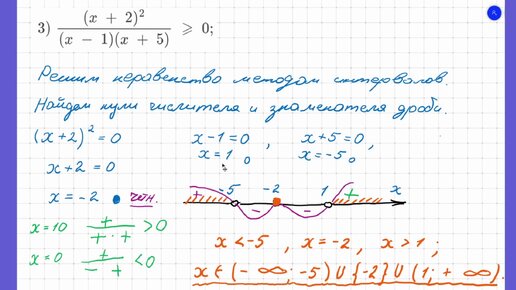 3) (x + 2)² / (x − 1)(x + 5) ⩾ 0;
Решим неравенство методом интервалов.
Найдём нули числителя и знаменателя дроби.
(x+2)² = 0   x−1=0 ,   x+5=0 ,
x+2 = 0   x=1   x=−5
x = −2   чётн.
+ −5 − −2 − 1 + x
x=10   + / + · + > 0
x=0   + / − · + < 0
x < −5 , x = −2 , x > 1 ;
x ∈ (− ∞; −5) ∪ {−2} ∪ (1; + ∞).